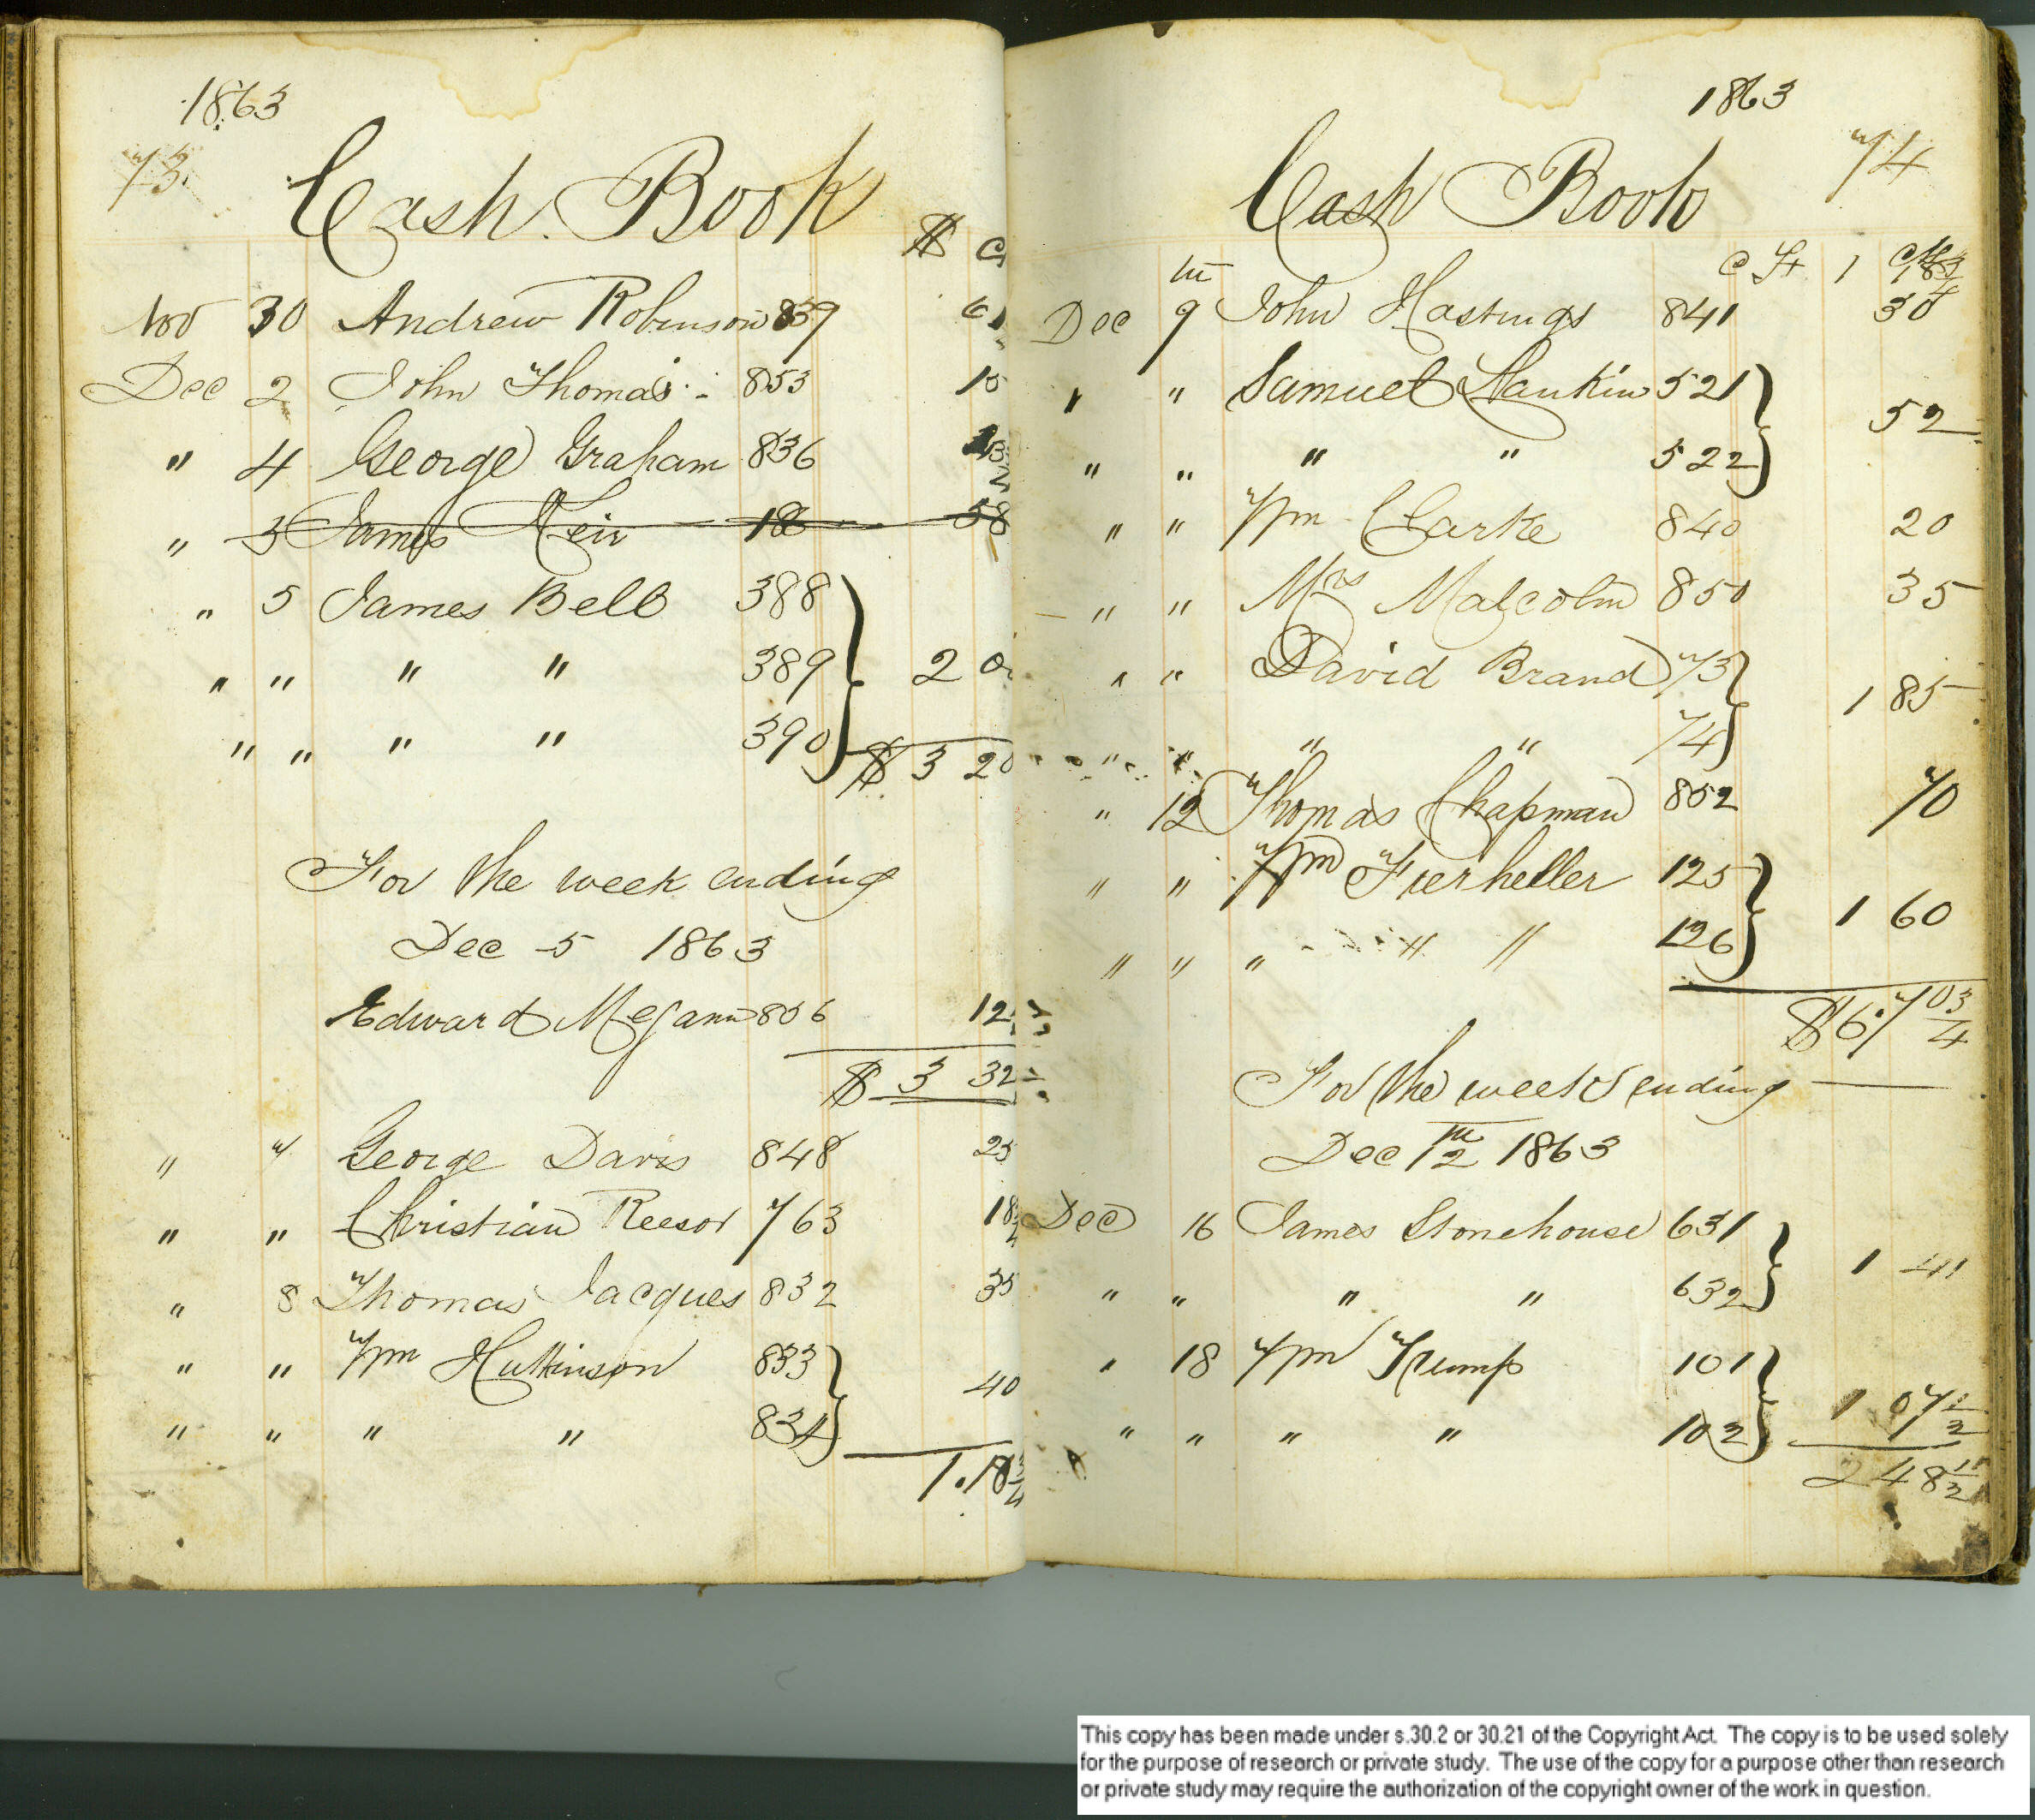 1863
73.
Cash Book
$ C
Nov 30 Andrew Robinson 859 61
Dec 2 John Thomas 853 15
" 4 George Graham 836
" 3 James Weir 18 58
" 5 James Bell 388
" " " " 389 2 0
" " " " 390 $ 3 20
For the week ending
Dec 5 1863
Edward Megann 806 12
$ 3 32
" " George Davis 848 25
" " Christian Reesor 763 18
" 8 Thomas Jacques 832 35
" " Wm Huttinson 833 40
" " " " 834
1.18
1863
74
Cash Book
1
Dec 9th John Hastings 841 30
" " Samuel Hankin 521 52
" " " " 522
" " Wm Clarke 840 20
" " Mrs Malcolm 850 35
" " David Brand 73 1 85
" " " " 74
" 12 Thomas Chapman 852 70
" " Wm Fierheller 125 1 60
" " " " " 126
$6.70 3/4
For the week ending
Dec 12th 1863
Dec 16 James Stonehouse 631 1 41
" " " " 632
" 18 Wm Trump 101
" " " " 102 1 07 1/2
2 48 1/2
This copy has been made under s.30.2 or 30.21 of the Copyright Act. The copy is to be used solely
for the purpose of research or private study. The use of the copy for a purpose other than research
or private study may require the authorization of the copyright owner of the work in question.